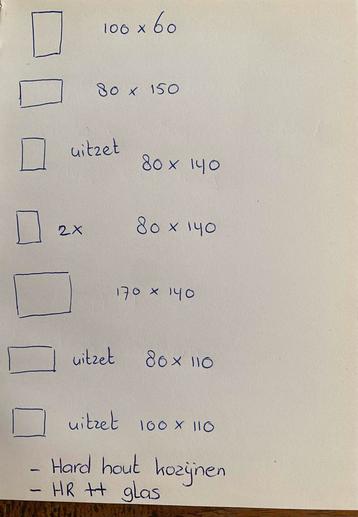 100 x 60
80 x 150
uitzet 80 x 140
2x 80 x 140
170 x 140
uitzet 80 x 110
uitzet 100 x 110
- Hard hout kozijnen
- HR ++ glas